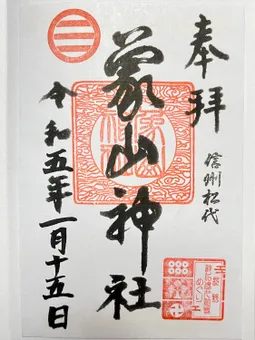 奉拝
信州松代
象山神社
令和五年一月十五日